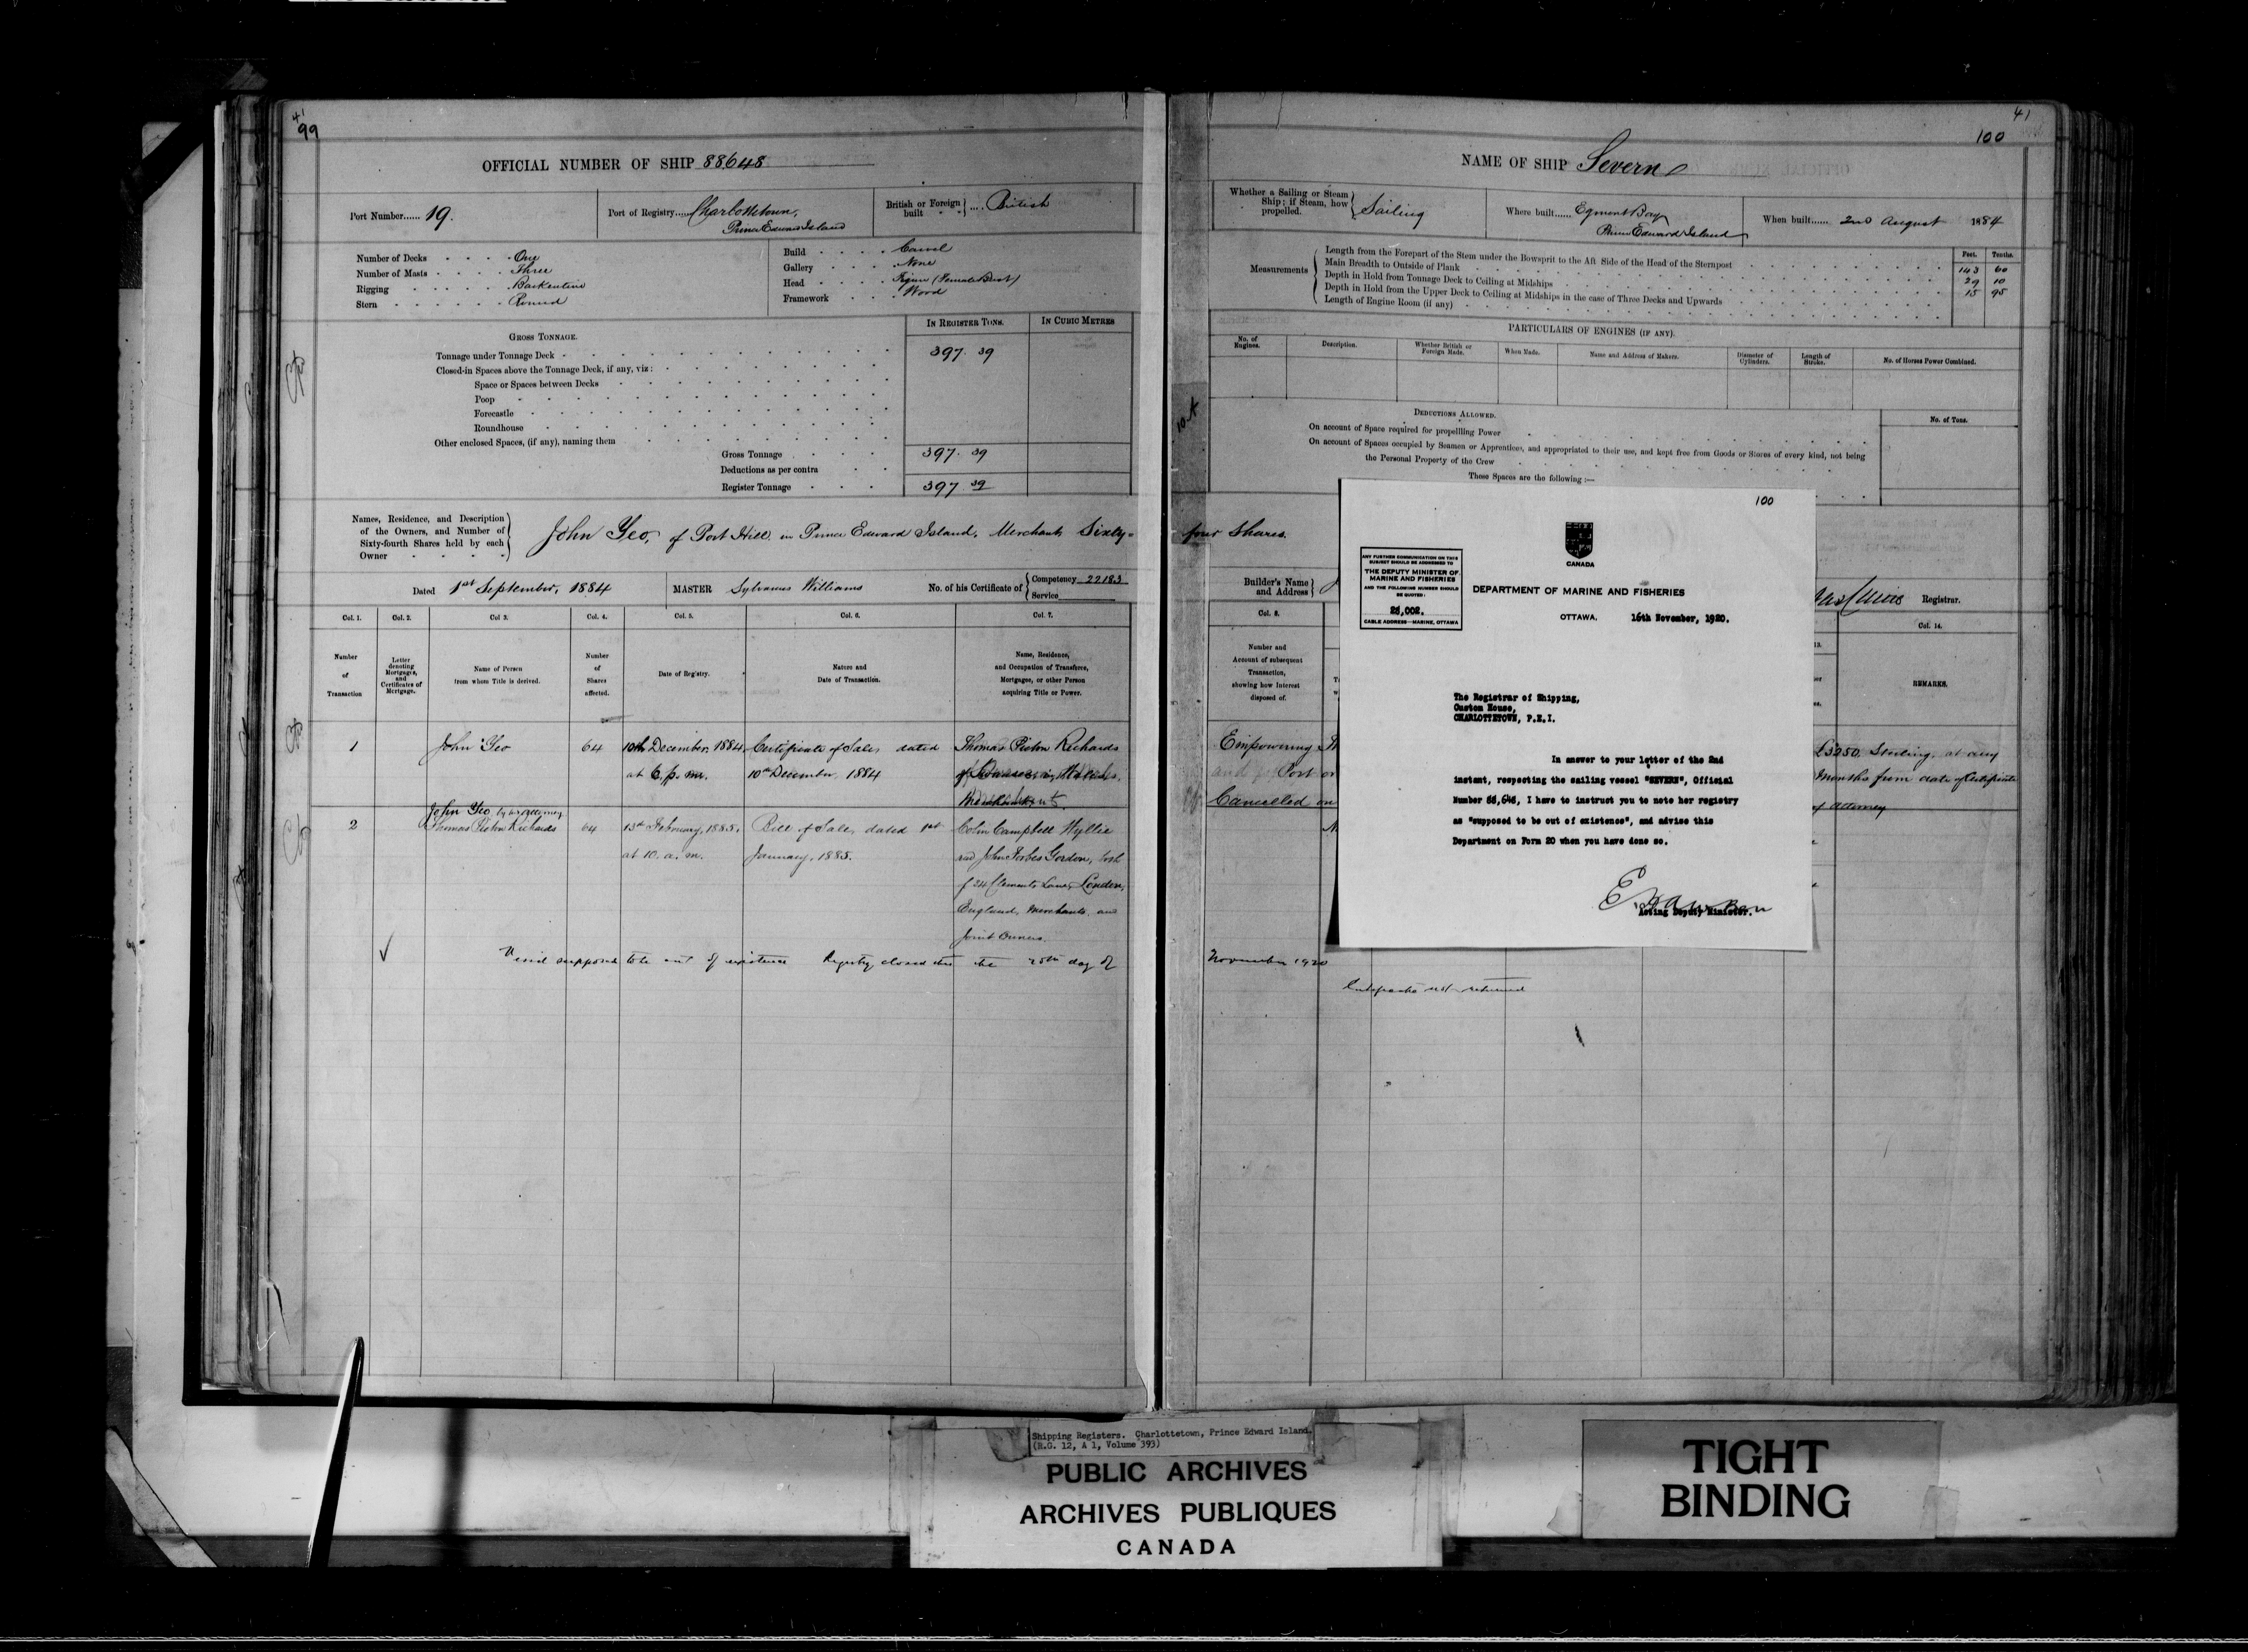 41
99
OFFICIAL NUMBER OF SHIP 88648
Port Number...... 19.
Port of Registry..... Charlottetown,
Prince Edward Island
British or Foreign built .... British
Number of Decks One
Number of Masts Three
Rigging Barkentine
Stern Round
Build Carvel
Gallery None
Head Figure (Female Bust)
Framework Wood
GROSS TONNAGE.
IN REGISTER TONS.
IN CUBIC METRES
Tonnage under Tonnage Deck 397. 39
Closed-in Spaces above the Tonnage Deck, if any, viz:
Space or Spaces between Decks
Poop
Forecastle
Roundhouse
Other enclosed Spaces, (if any), naming them
Gross Tonnage 397. 39
Deductions as per contra
Register Tonnage 397. 39
Names, Residence, and Description
of the Owners, and Number of
Sixty-fourth Shares held by each
Owner
John Yeo, of Port Hill in Prince Edward Island, Merchant Sixty-
Dated 1st September, 1884 MASTER Sylvanus Williams No. of his Certificate of Competency 22183
Service
Col. 1. Col. 2. Col 3. Col. 4. Col. 5. Col. 6. Col. 7.
Number of Transaction
Letter denoting Mortgages, and Certificates of Mortgage.
Name of Person from whom Title is derived.
Number of Shares affected.
Date of Registry.
Nature and Date of Transaction.
Name, Residence, and Occupation of Transferee, Mortgagee, or other Person acquiring Title or Power.
1 John Yeo 64 10th December, 1884 Certificate of Sale, dated Thomas Picton Richards
at 6. p. m. 10th December, 1884 of Swansea, in Wales,
Merchant
John Yeo by his attorney
2 Thomas Picton Richards 64 13th February, 1885, Bill of Sale, dated 1st Colin Campbell Wyllie
at 10. a. m. January, 1885. and John Forbes Gordon, both
of 34 Clements Lane, London,
England, Merchants and
Joint Owners.
Vessel supposed to be out of existence Registry closed this the 25th day of
41
100
NAME OF SHIP Severn
Whether a Sailing or Steam
Ship; if Steam, how
propelled.
Sailing
Where built...... Egmont Bay
Prince Edward Island
When built...... 2nd August 1884
Measurements
Feet. Tenths.
Length from the Forepart of the Stem under the Bowsprit to the Aft Side of the Head of the Sternpost 143 60
Main Breadth to Outside of Plank 29 10
Depth in Hold from Tonnage Deck to Ceiling at Midships 15 95
Depth in Hold from the Upper Deck to Ceiling at Midships in the case of Three Decks and Upwards
Length of Engine Room (if any)
PARTICULARS OF ENGINES (IF ANY).
No. of Engines.
Description.
Whether British or Foreign Made.
When Made.
Name and Address of Makers.
Diameter of Cylinders.
Length of Stroke.
No. of Horses Power Combined.
DEDUCTIONS ALLOWED.
No. of Tons.
On account of Space required for propellling Power
On account of Spaces occupied by Seamen or Apprentices, and appropriated to their use, and kept free from Goods or Stores of every kind, not being
the Personal Property of the Crew
These Spaces are the following:—
four Shares.
Builder's Name
and Address
Registrar.
Col. 8.
Col. 14.
Number and
Account of subsequent
Transaction,
showing how Interest
disposed of.
REMARKS.
Empowering
£3250. Sterling, at any
and Port
Months from date of Certificate
Cancelled on
of attorney
November 1920
Certificate not returned
100
CANADA
ANY FURTHER COMMUNICATION ON THIS
SUBJECT SHOULD BE ADDRESSED TO
THE DEPUTY MINISTER OF
MARINE AND FISHERIES
AND THE FOLLOWING NUMBER SHOULD
BE QUOTED:
25,002.
CABLE ADDRESS—MARINE, OTTAWA
DEPARTMENT OF MARINE AND FISHERIES
OTTAWA. 16th November, 1920.
The Registrar of Shipping,
Custom House,
CHARLOTTETOWN, P.E.I.
In answer to your letter of the 2nd
instant, respecting the sailing vessel "SEVERN", Official
Number 88,648, I have to instruct you to note her registry
as "supposed to be out of existence", and advise this
Department on Form 20 when you have done so.
E. Hawken
Acting Deputy Minister.
Shipping Registers. Charlottetown, Prince Edward Island.
(R.G. 12, A 1, Volume 393)
PUBLIC ARCHIVES
ARCHIVES PUBLIQUES
CANADA
TIGHT
BINDING